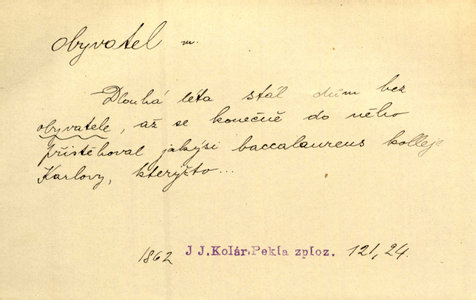 obyvatel m.
Dlouhá léta stál dům bez
obyvatele, až se konečně do něho
přistěhoval jakýsi baccalaureus kolleje
Karlovy, kterýžto...
1862 J J.Kolár.Pekla zploz. 121,24.